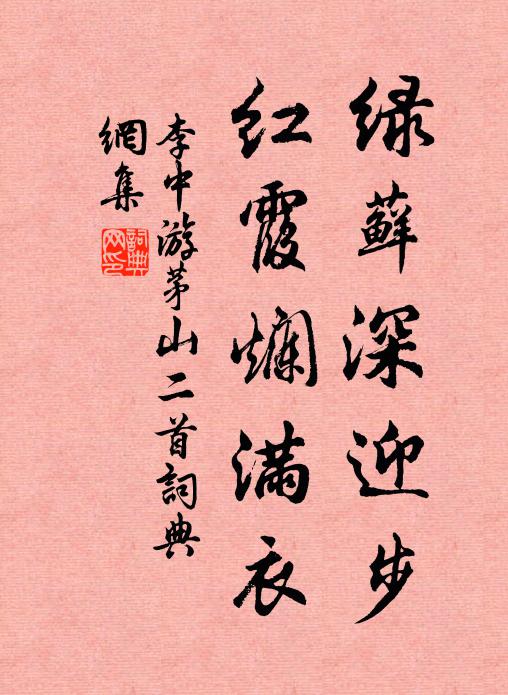 绿藓深迎步
红霞烂满衣
李中游茅山二首詞典
網集
詞典
网印